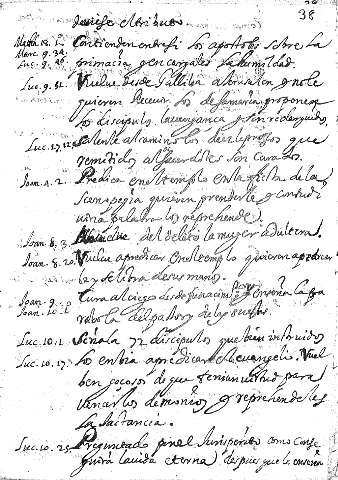 38
deviese el tributo.
Contienden entre si los apostoles sobre la
Marc. 9.
Luc. 9. primacia y encargales la humildad.
Luc. 9. 51. Vuelve desde Galilea a Jerusalen y no le
quieren recevir los de samaria, proponen
los discipulos la venganza y son redarguidos,
Luc. 17. 12. salenle al camino los diez leprosos que
remitidos al sacerdote son curados.
Joan. 7. 2. Predica en el templo en la fiesta de la
scenapegia quieren prenderle y con su di
vina palabra los reprehende.
Joan. 8. 3. del delito la muger adultera.
Joan. 8. 20. Vuelve a predicar en el templo quieren
y se libra de sus manos.
Joan. 9.
Joan. 10. Cura al ciego desde su nacimiento y enseña la pa
rabola del pastor y de las ovejas.
Luc. 10. 1. Señala 72 discipulos que bien instruidos
Luc. 10. 17. los enbia a predicar el evangelio. Vuel
ben gozosos de que tenian virtud para
vencer los demonios y reprehendeles
la jactancia.
Luc. 10. 25. Preguntado por el Jurisperito como conse
guirá la vida eterna despues que le